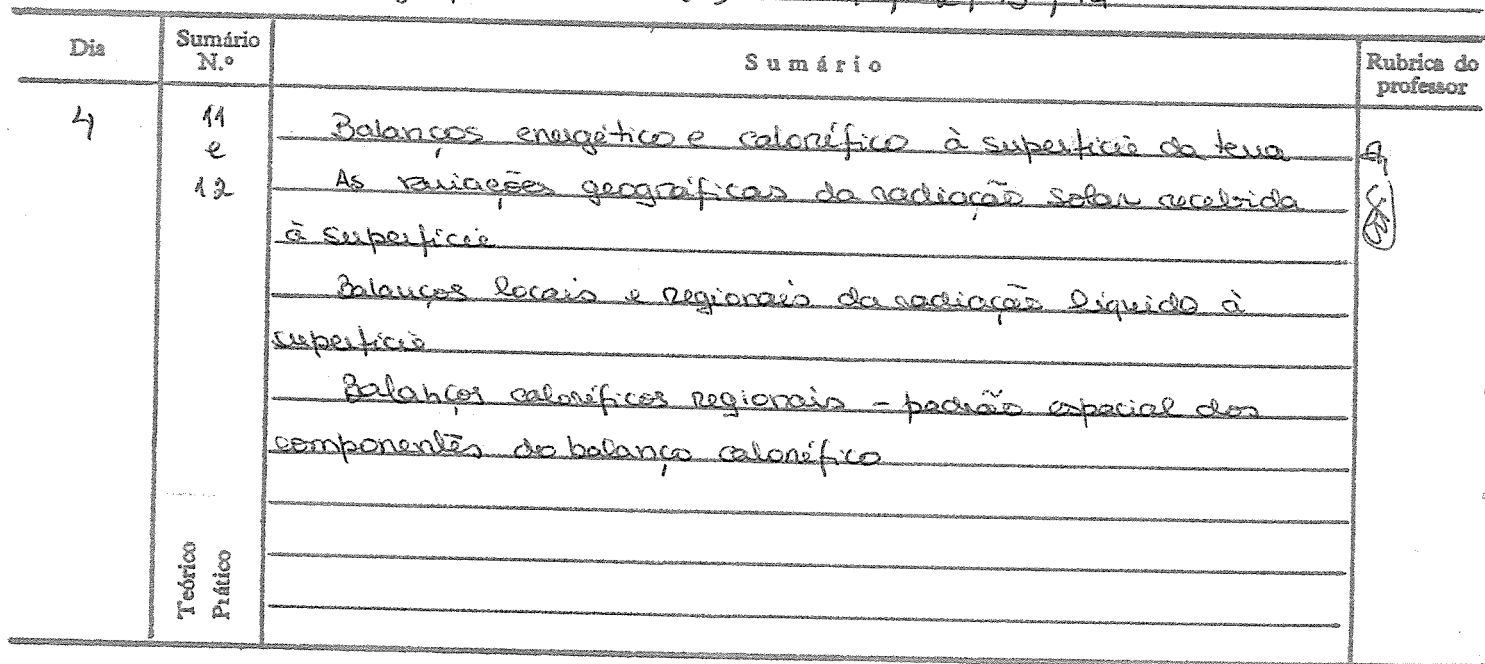 Dia Sumário N.º Sumário Rubrica do professor
4 11 e 12 Balanços energético e calorífico à superfície da terra
As variações geográficas da radiação solar recebida
à superfície
Balanços locais e regionais da radiação líquido à
superfície
Balanços caloríficos regionais - padrão espacial dos
componentes do balanço calorífico
Teórico
Prático